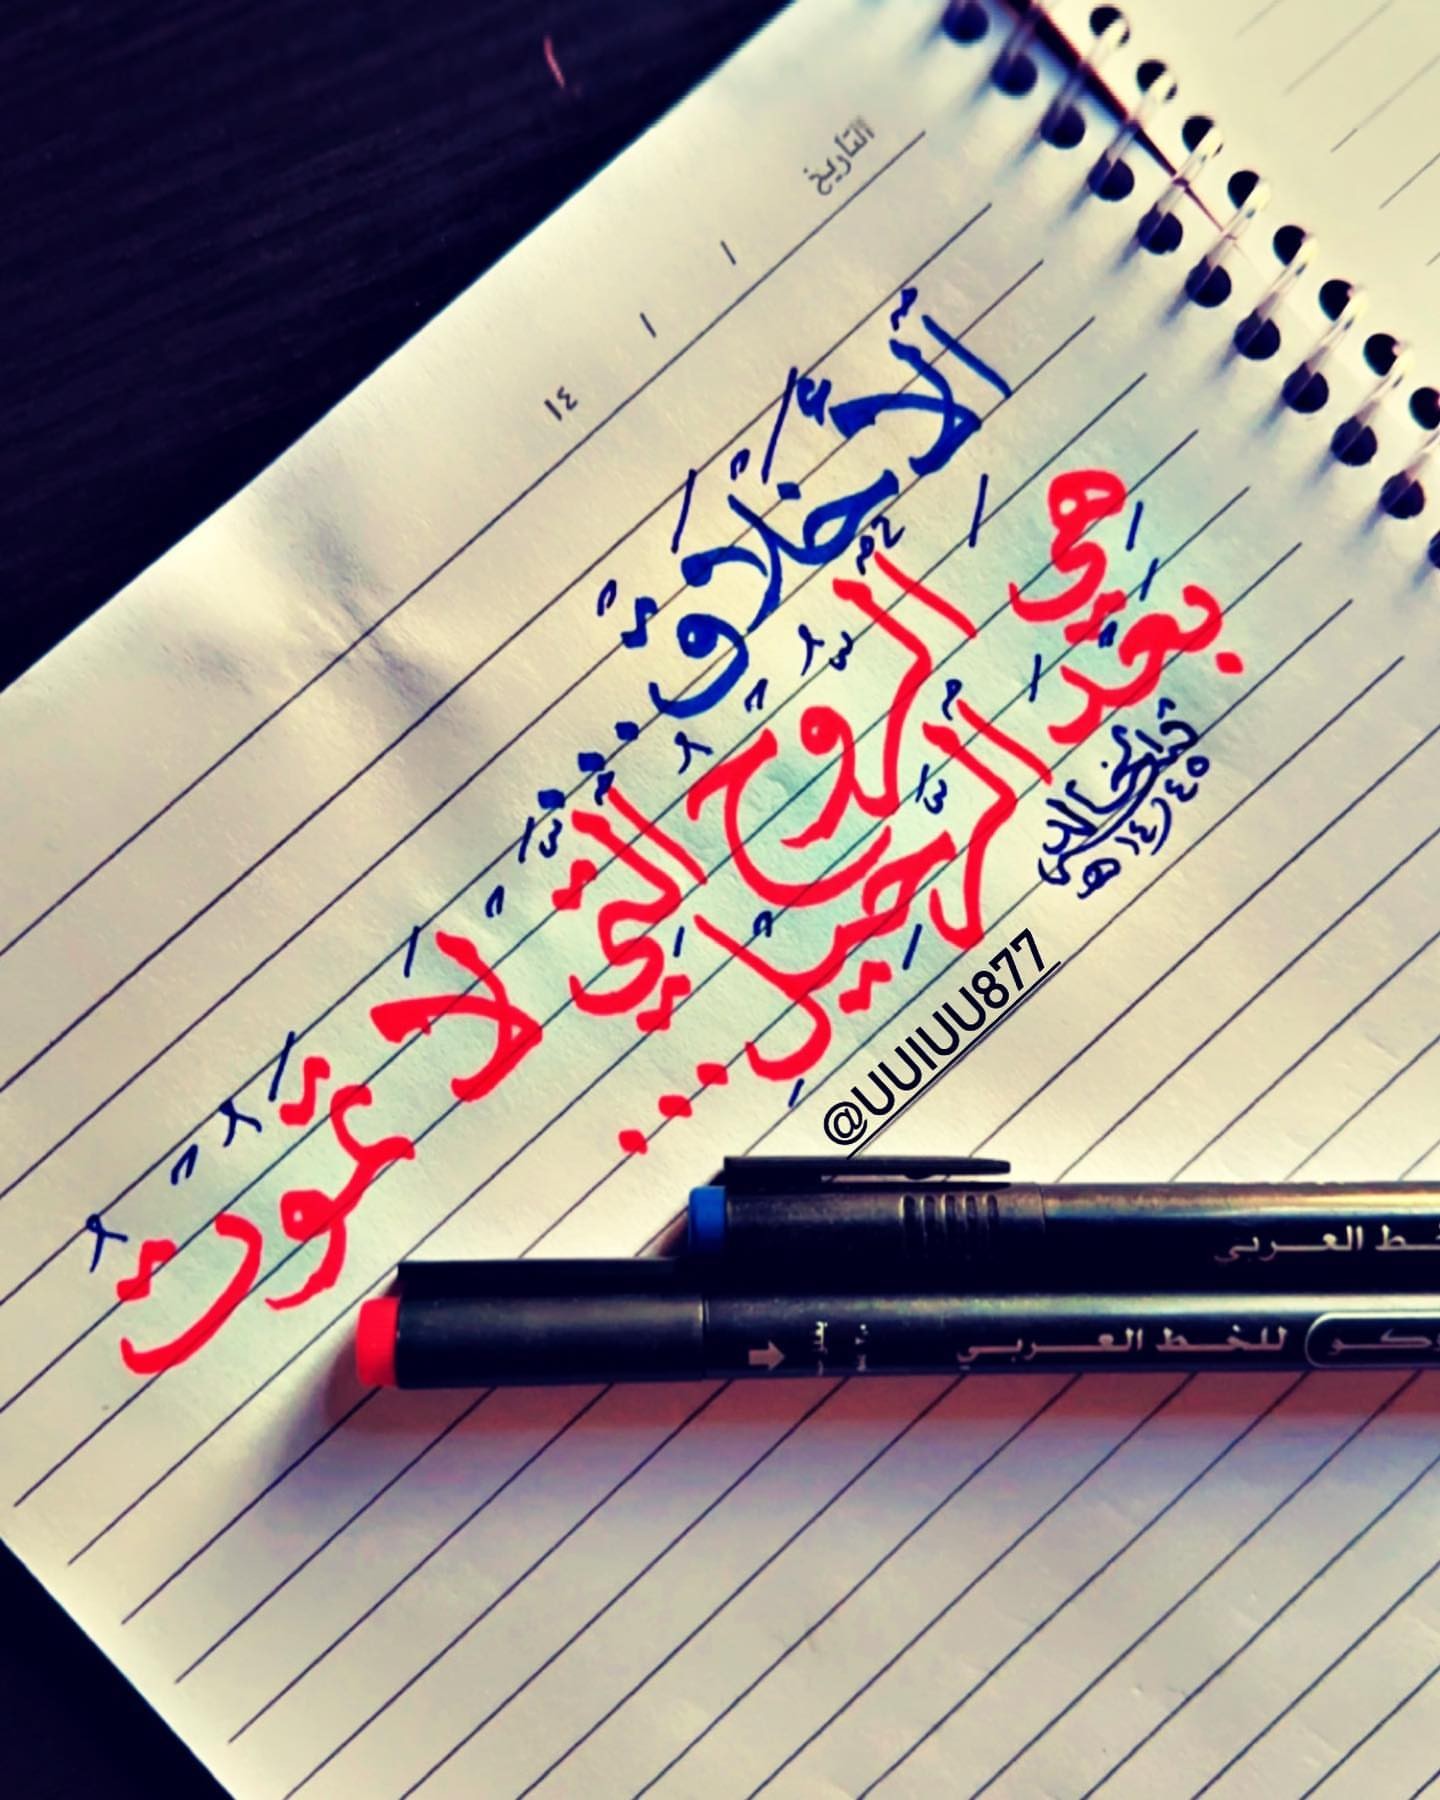 التاريخ
/ / ١٤
الأخلاق...
هي الروح التي لا تموت
بعد الرحيل...
١٤٤٥هـ
@UUIUU877
خط العربي
للخط العربي